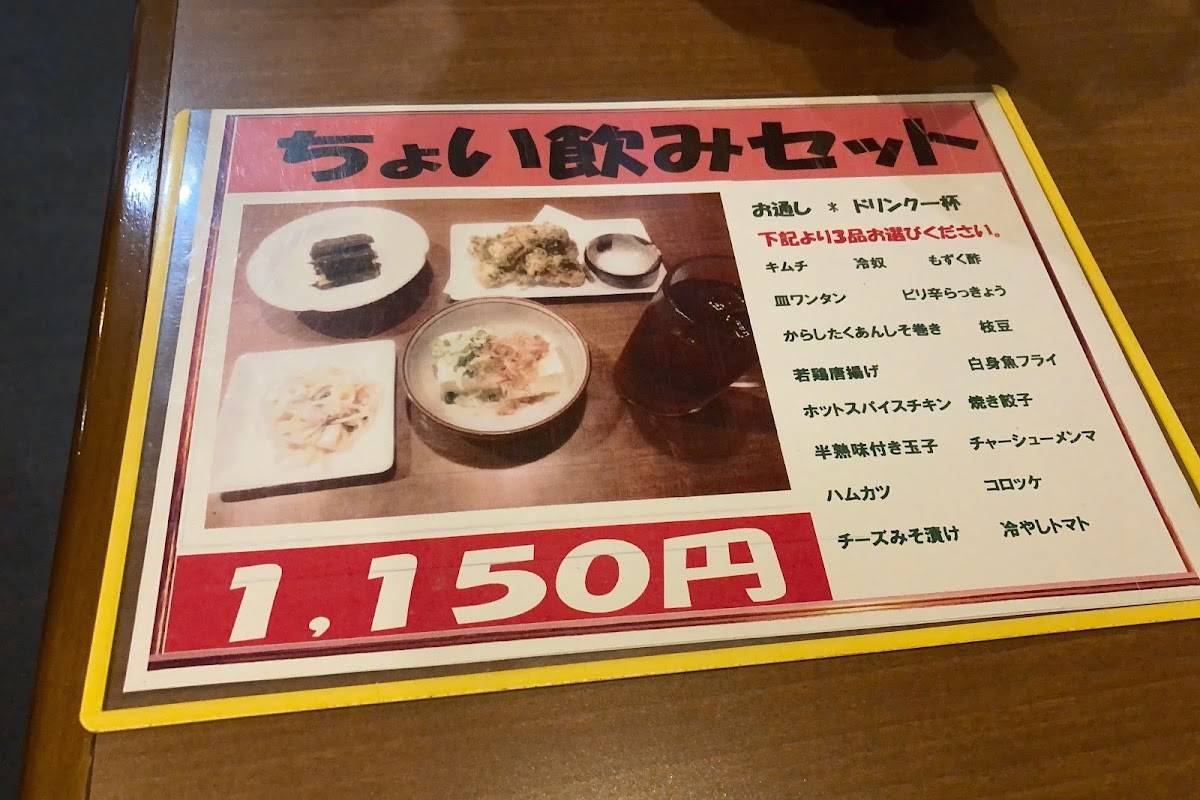 ちょい飲みセット
お通し * ドリンク一杯
下記より3品お選びください。
キムチ 冷奴 もずく酢
皿ワンタン ピリ辛らっきょう
からしたくあんしそ巻き 枝豆
若鶏唐揚げ 白身魚フライ
ホットスパイスチキン 焼き餃子
半熟味付き玉子 チャーシューメンマ
ハムカツ コロッケ
チーズみそ漬け 冷やしトマト
1,150円